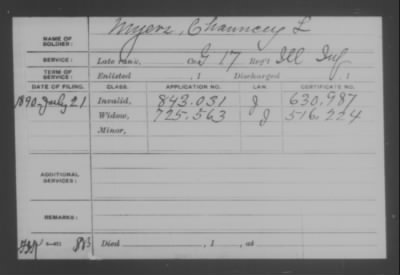 NAME OF SOLDIER: Myers, Chauncey L
SERVICE: Late rank, Co. G 17 Reg't Ill Inf
TERM OF SERVICE: Enlisted , 1 Discharged , 1
DATE OF FILING. CLASS. APPLICATION NO. LAW. CERTIFICATE NO.
1890-July 21 Invalid, 843.031 J 630,987
Widow, 725,563 J 516,224
Minor,
ADDITIONAL SERVICES:
REMARKS:
Died , 1 , at